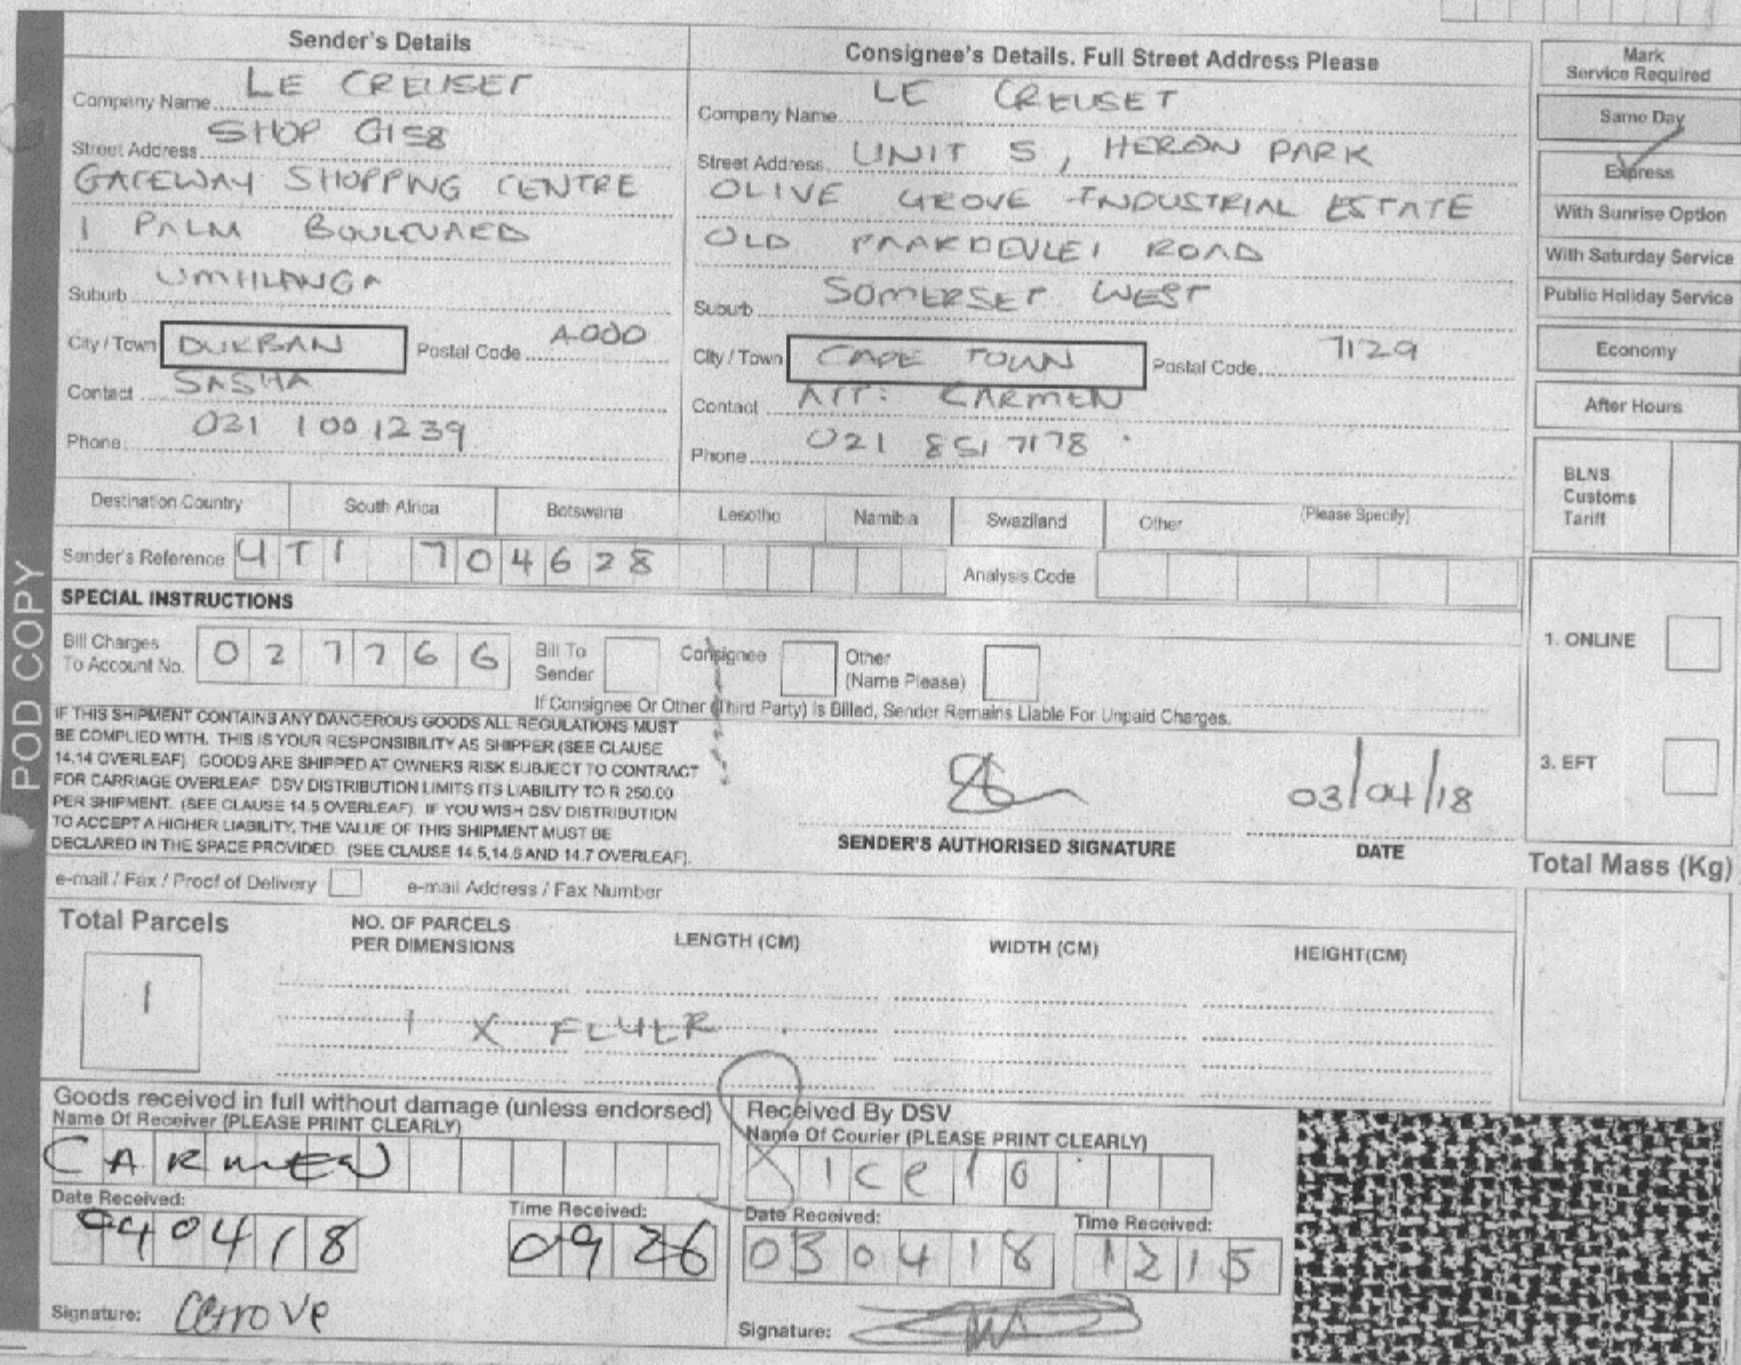 Sender's Details
Company Name LE CREUSET
Street Address SHOP G158
GATEWAY SHOPPING CENTRE
1 PALM BOULEVARD
Suburb UMHLANGA
City / Town DURBAN Postal Code 4000
Contact SASHA
Phone 031 100 1239
Consignee's Details. Full Street Address Please
Company Name LE CREUSET
Street Address UNIT 5, HERON PARK
OLIVE GROVE INDUSTRIAL ESTATE
OLD PAARDEVLEI ROAD
Suburb SOMERSET WEST
City / Town CAPE TOWN Postal Code 7129
Contact ATT: CARMEN
Phone 021 851 7178
Mark
Service Required
Same Day
Express
With Sunrise Option
With Saturday Service
Public Holiday Service
Economy
After Hours
BLNS
Customs
Tariff
Destination Country South Africa Botswana Lesotho Namibia Swaziland Other (Please Specify)
Sender's Reference UTI 704628 Analysis Code
SPECIAL INSTRUCTIONS
Bill Charges
To Account No. 027766
Bill To
Sender
Consignee
Other
(Name Please)
If Consignee Or Other (Third Party) Is Billed, Sender Remains Liable For Unpaid Charges.
1. ONLINE
3. EFT
POD COPY
IF THIS SHIPMENT CONTAINS ANY DANGEROUS GOODS ALL REGULATIONS MUST
BE COMPLIED WITH. THIS IS YOUR RESPONSIBILITY AS SHIPPER (SEE CLAUSE
14.14 OVERLEAF). GOODS ARE SHIPPED AT OWNERS RISK SUBJECT TO CONTRACT
FOR CARRIAGE OVERLEAF. DSV DISTRIBUTION LIMITS ITS LIABILITY TO R 250.00
PER SHIPMENT. (SEE CLAUSE 14.5 OVERLEAF). IF YOU WISH DSV DISTRIBUTION
TO ACCEPT A HIGHER LIABILITY, THE VALUE OF THIS SHIPMENT MUST BE
DECLARED IN THE SPACE PROVIDED. (SEE CLAUSE 14.5,14.6 AND 14.7 OVERLEAF).
03/04/18
SENDER'S AUTHORISED SIGNATURE DATE
e-mail / Fax / Proof of Delivery e-mail Address / Fax Number
Total Mass (Kg)
Total Parcels
1
NO. OF PARCELS
PER DIMENSIONS
LENGTH (CM) WIDTH (CM) HEIGHT(CM)
1 X FLYER
Goods received in full without damage (unless endorsed)
Name Of Receiver (PLEASE PRINT CLEARLY)
CARMEN
Date Received: Time Received:
040418 0926
Signature:
Received By DSV
Name Of Courier (PLEASE PRINT CLEARLY)
Date Received: Time Received:
030418 1215
Signature: